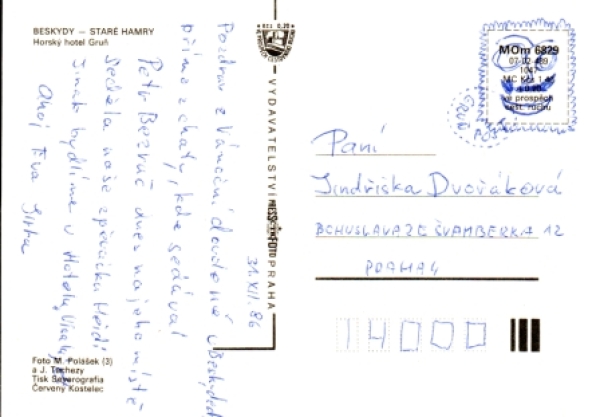 BESKYDY — STARÉ HAMRY
Horský hotel Gruň
31. XII. 86
Pozdrav z Vánoční dovolené v Beskydech
přímo z chaty, kde sedával
Petr Bezruč dnes na jeho místě
seděla naše zpěvačka Heidi
jinak bydlíme v Hotelu
Ahoj Eva Jirka
Foto M. Polášek (3)
a J. Tuchezy
Tisk Severografia
Červený Kostelec
VYDAVATELSTVÍ PRESSFOTO PRAHA
MOm 6829
07-02-489
1047
MC Kčs 1,40
+ 0,20
ve prospěch
cest. ruchu
Paní
Jindřiška Dvořáková
BOHUSLAVA ZE ŠVAMBERKA 12
PRAHA 4
14000